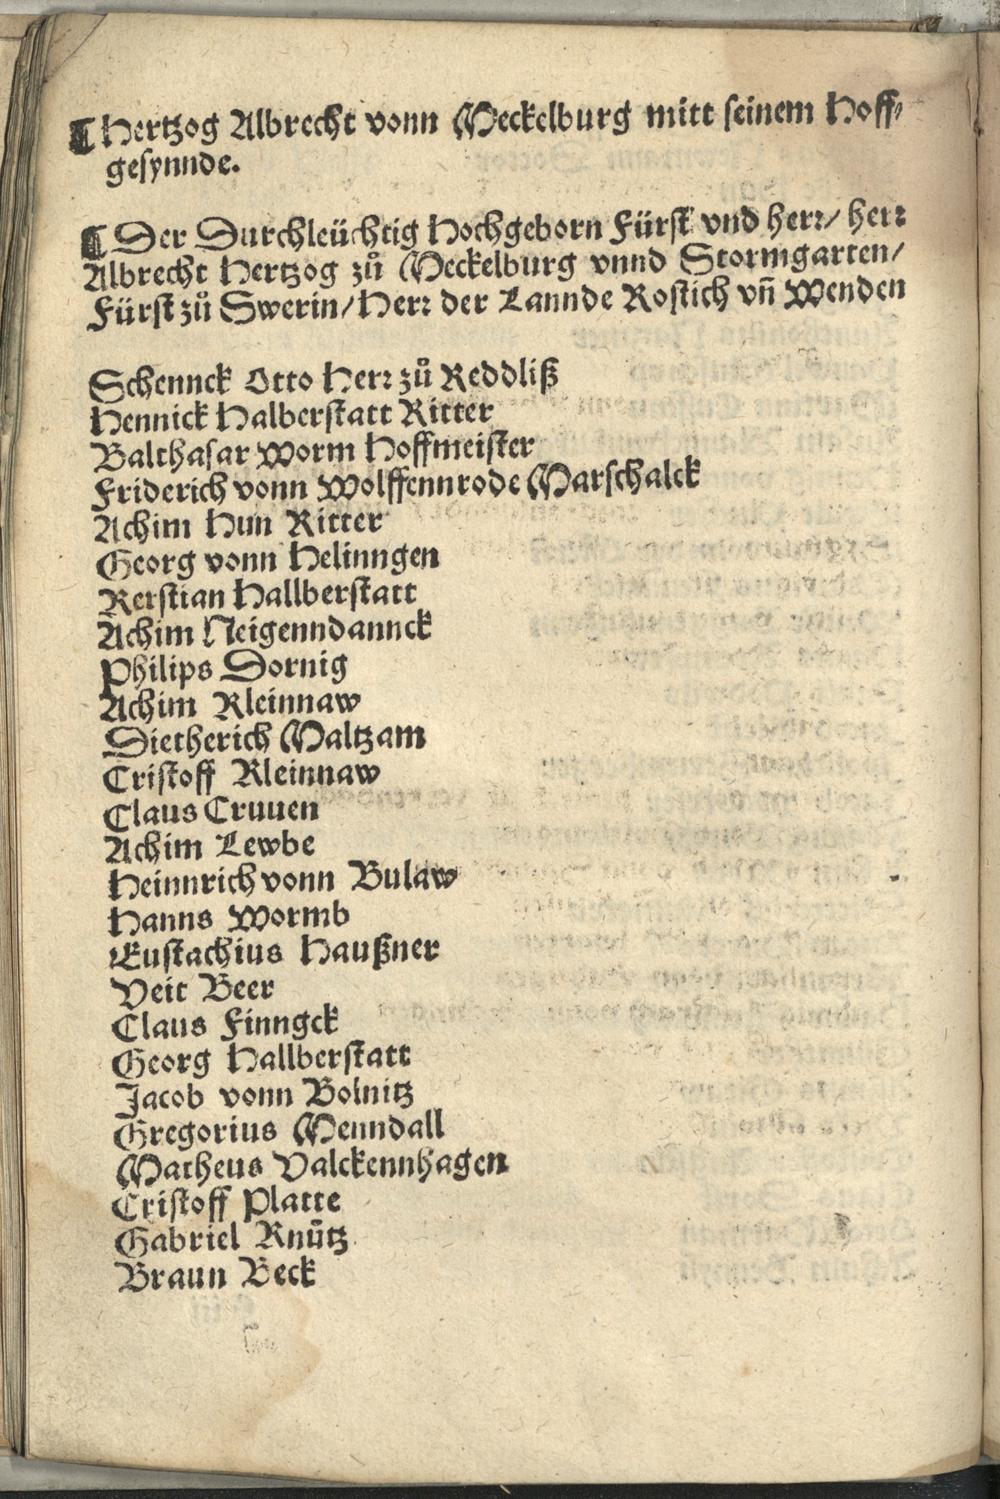 ¶ Hertzog Albrecht vonn Meckelburg mitt seinem Hoff⸗
gesynnde.
¶ Der Durchleüchtig Hochgeborn Fürst vnd herr/ herr
Albrecht Hertzog zů Meckelburg vnnd Stormgarten/
Fürst zů Swerin/ Herr der Lannde Rostich vñ Wenden
Schennck Otto Herr zů Reddliß
Hennick Halberstatt Ritter
Balthasar Worm Hoffmeister
Friderich vonn Wolffennrode Marschalck
Achim Hun Ritter
Georg vonn Helinngen
Kerstian Hallberstatt
Achim Neigenndannck
Philips Dornig
Achim Kleinnaw
Dietherich Maltzam
Cristoff Kleinnaw
Claus Cruuen
Achim Lewbe
Heinnrich vonn Bulaw
Hanns Wormb
Eustachius Haußner
Veit Beer
Claus Finngck
Georg Hallberstatt
Jacob vonn Bolnitz
Gregorius Menndall
Matheus Valckennhagen
Cristoff Platte
Gabriel Knůtz
Braun Beck